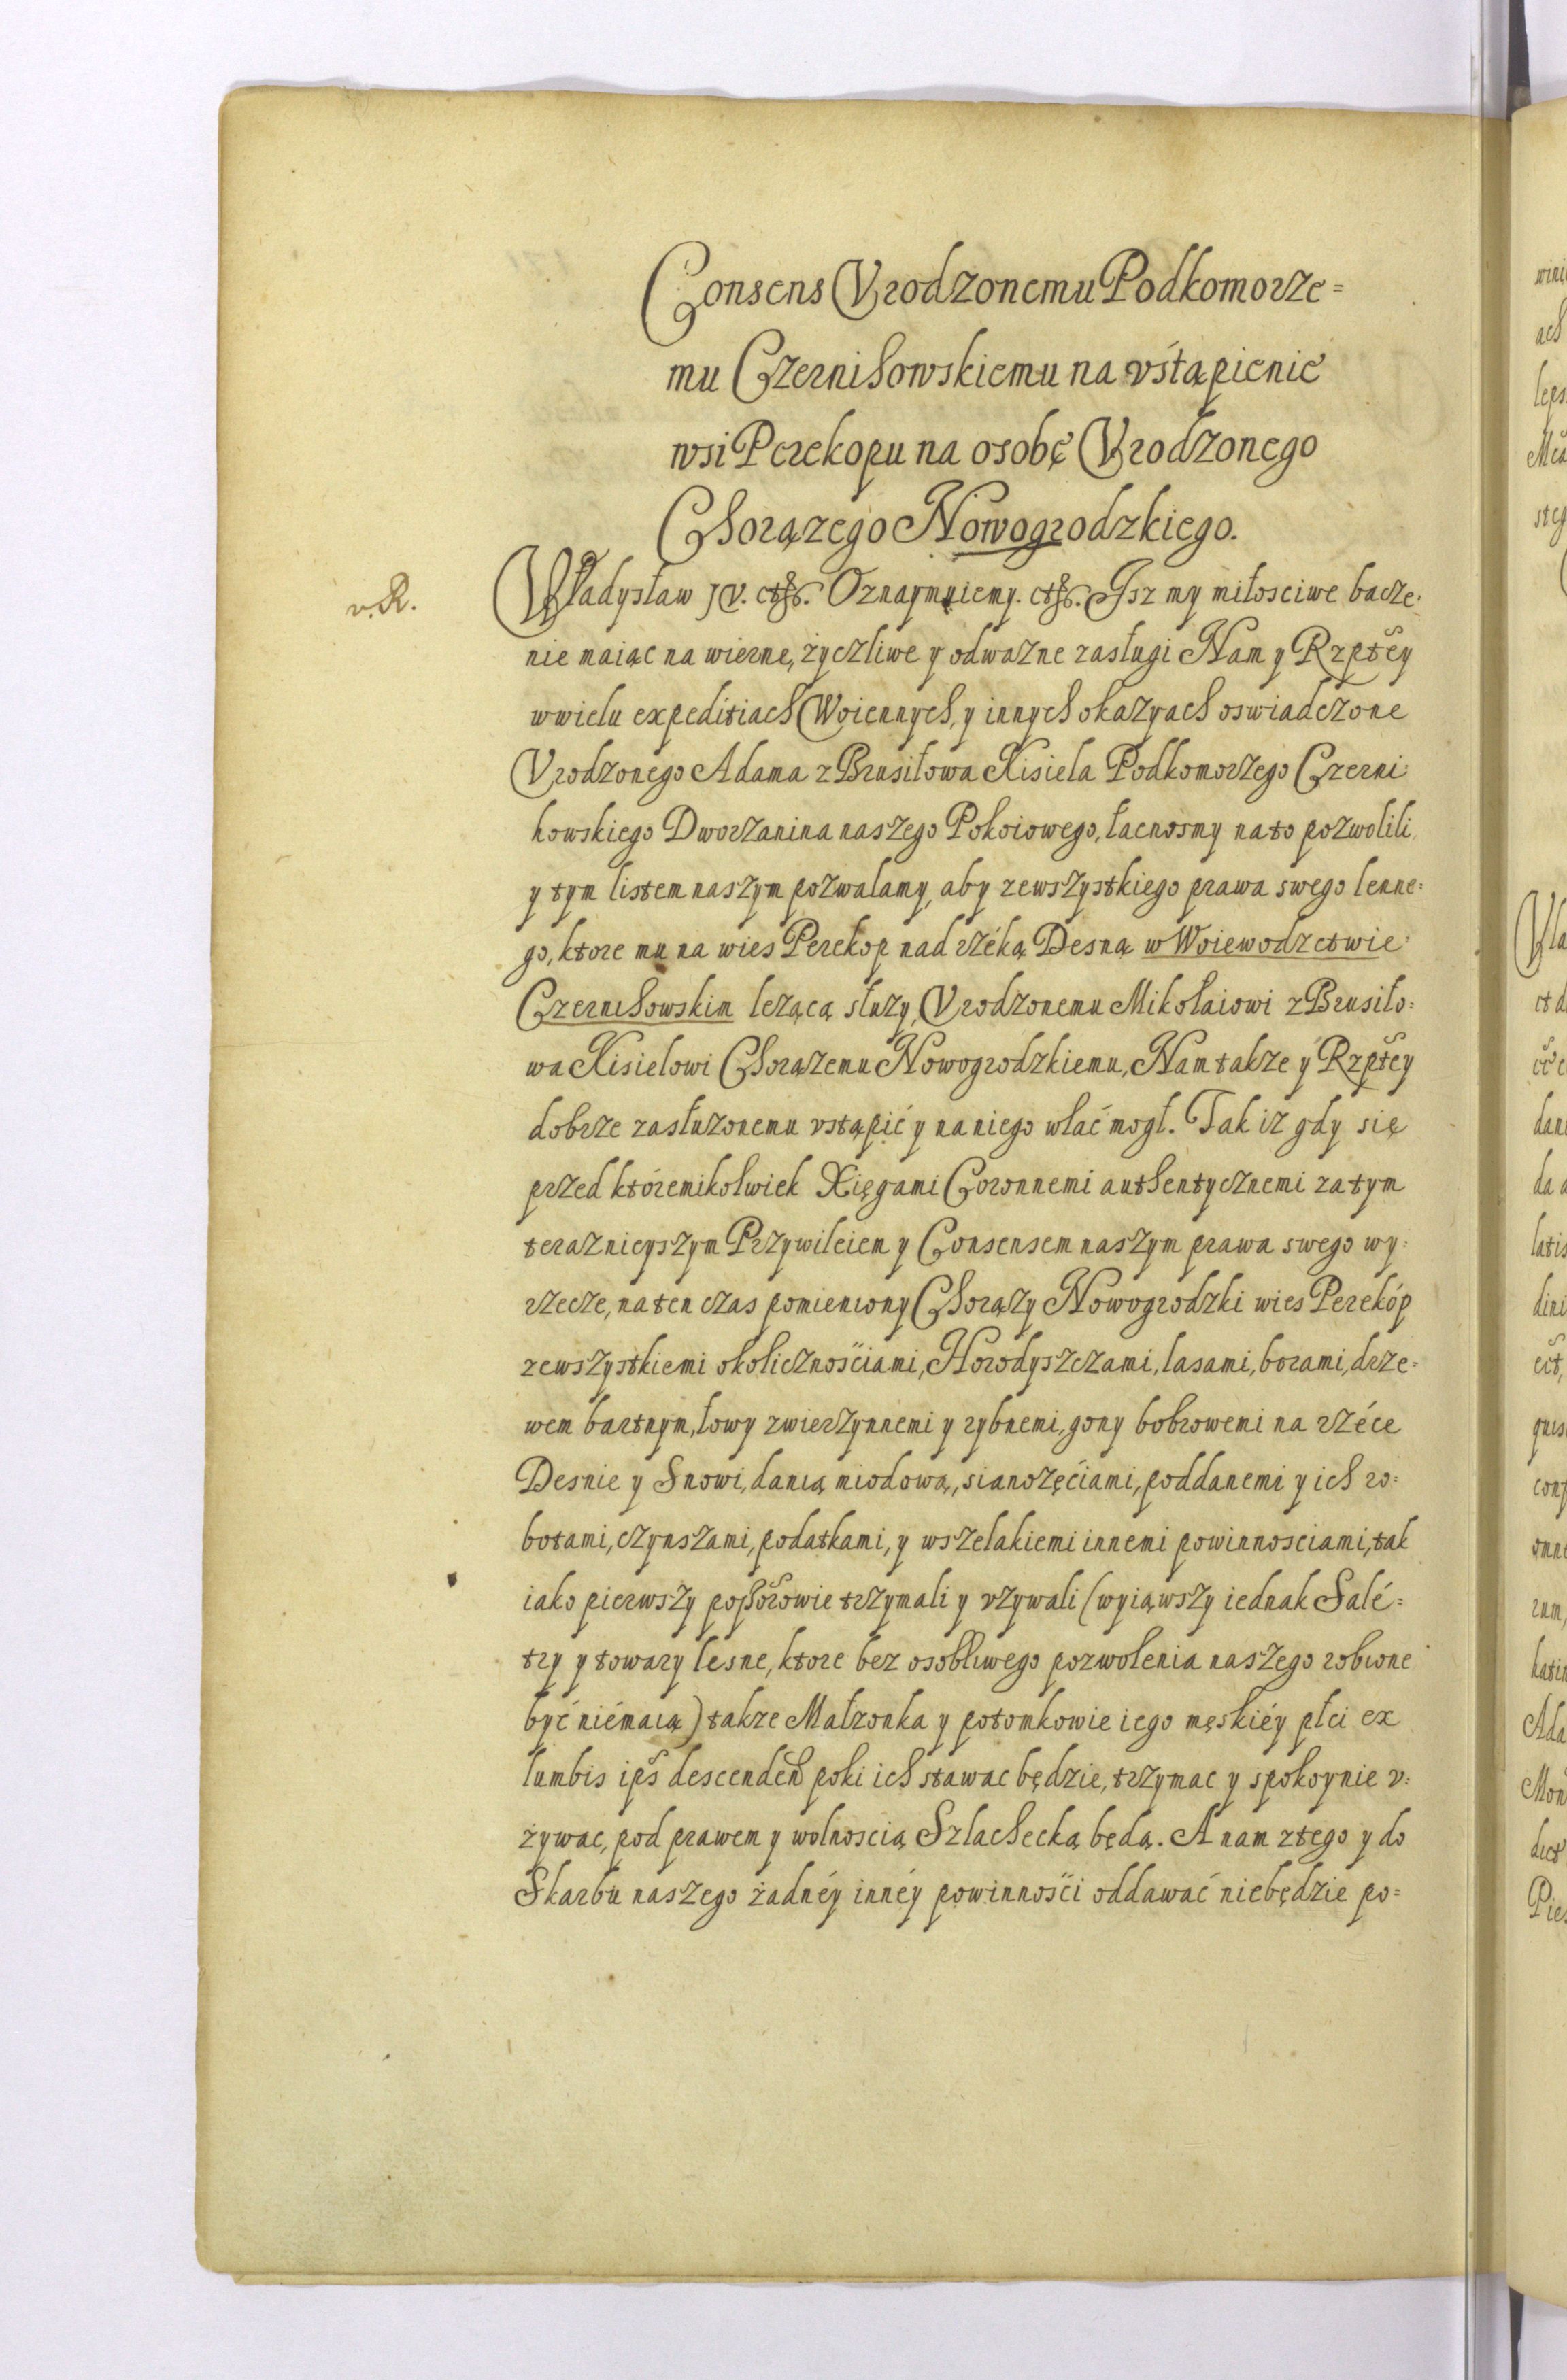 Consens Vrodzonemu Podkomorze=
mu Czernihowskiemu na vstąpienie
wsi Perekopu na osobę Vrodzonego
Chorązego Nowogrodzkiego.
v. R.
Władysław JV. etc. Oznaymuiemy. etc. Jsz my miłosciwe bacze:
nie maiąc na wierne, życzliwe y odwazne zasługi Nam y Rzptey
w wielu expeditiach Woiennych, y innych okazyach oswiadczone
Vrodzonego Adama z Brusiłowa Kisiela Podkomorzego Czerni:
howskiego Dworzanina naszego Pokoiowego, łacnosmy na to pozwolili
y tym listem naszym pozwalamy, aby zewszystkiego prawa swego lenne:
go, ktore mu na wies Perekop nad rzéką Desną w Woiewodzctwie
Czernihowskim lezącą słuzy, Vrodzonemu Mikołaiowi z Brusiło:
wa Kisielowi Chorązemu Nowogrodzkiemu, Nam takze y Rzptey
dobrze zasłuzonemu vstąpić y na niego wlać mogł. Tak iz gdy się
przed któremikolwiek Xięgami Coronnemi authentycznemi za tym
teraznieyszym Przywileiem y Consensem naszym prawa swego wy:
rzecze, na ten czas pomieniony Chorązy Nowogrodzki wies Perekóp
zewszystkiemi okolicznościami, Horodyszczami, lasami, borami, drze=
wem bartnym, łowy zwierzynnemi y rybnemi, gony bobrowemi na rzéce
Desnie y Snowi, danią miodową, sianozęciami, poddanemi y ich ro:
botami, czynszami, podatkami, y wszelakiemi innemi powinnosciami, tak
iako pierwszy possorowie trzymali y vzywali (wyiąwszy iednak Salé=
try y towary lesne, ktore bez osobliwego pozwolenia naszego robione
być niémaią) takze Małzonka y potomkowie iego męskiéy płci ex
lumbis ips descenden poki ich stawac będzie, trzymac y spokoynie v:
żywac, pod prawem y wolnoscią Szlachecką będą. A nam z tego y do
Skarbu naszego żadnéy innéy powinności oddawać niebędzie po=